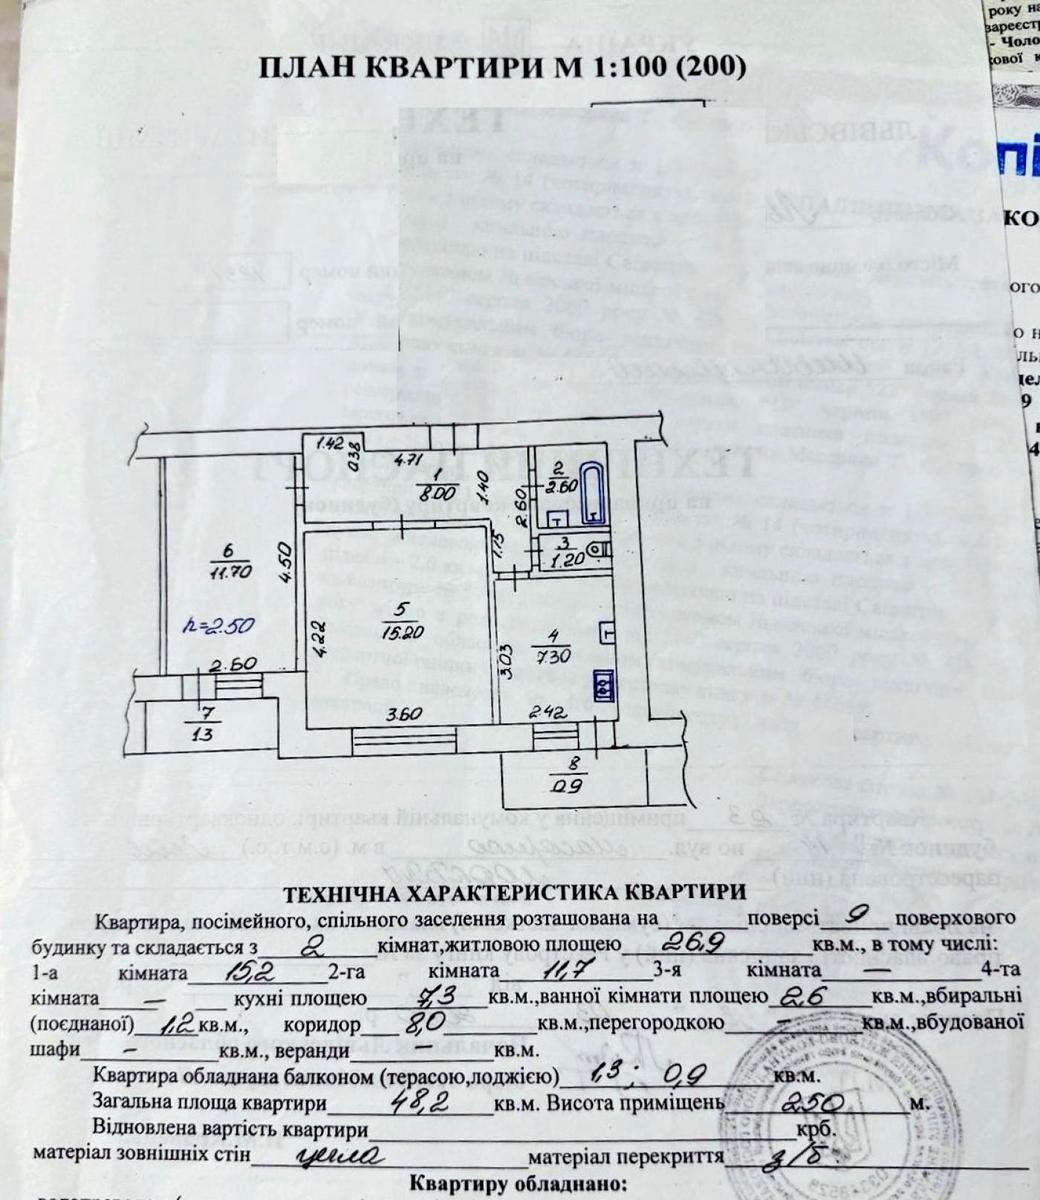 року на
зареєстр
- Чоло
кової к
ПЛАН КВАРТИРИ М 1:100 (200)
КО
ого
о н
9
4
1.42
0.38
4.71
1
8.00
1.40
2
2.60
2.60
1.15
3
1.20
6
11.70
4.50
h=2.50
2.60
5
15.20
4.22
3.60
3.03
4
7.30
2.42
7
1.3
8
0.9
ТЕХНІЧНА ХАРАКТЕРИСТИКА КВАРТИРИ
Квартира, посімейного, спільного заселення розташована на поверсі 9 поверхового
будинку та складається з 2 кімнат,житловою площею 26,9 кв.м., в тому числі:
1-а кімната 15,2 2-га кімната 11,7 3-я кімната — 4-та
кімната — кухні площею 7,3 кв.м.,ванної кімнати площею 2,6 кв.м.,вбиральні
(поєднаної) 1,2 кв.м., коридор 8,0 кв.м.,перегородкою – кв.м.,вбудованої
шафи – кв.м., веранди – кв.м.
Квартира обладнана балконом (терасою,лоджією) 1,3; 0,9 кв.м.
Загальна площа квартири 48,2 кв.м. Висота приміщень 250 м.
Відновлена вартість квартири крб.
матеріал зовнішніх стін цегла матеріал перекриття з/б.
Квартиру обладнано: